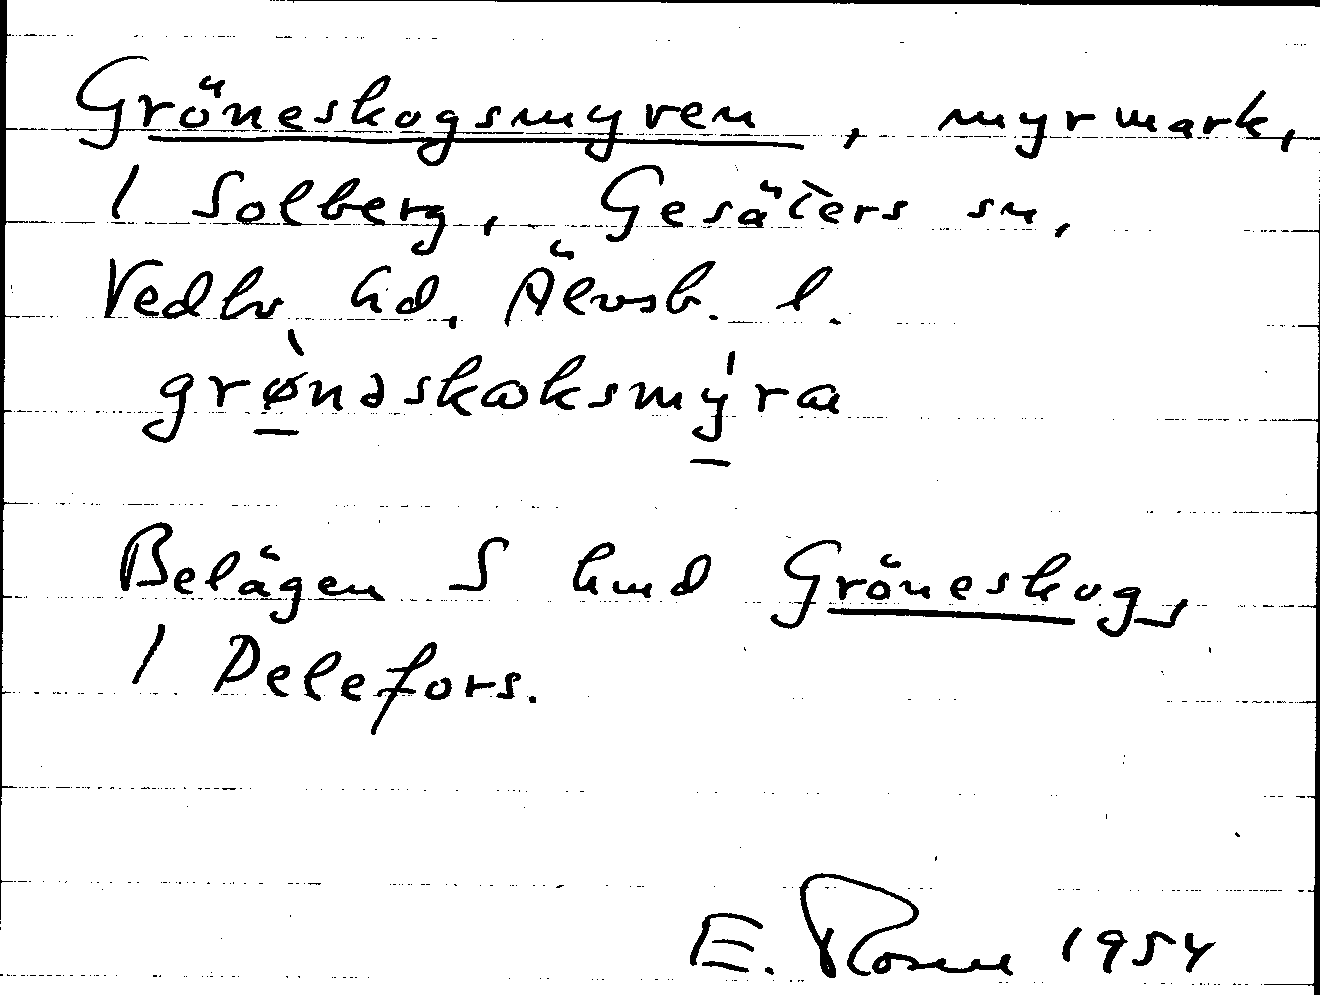 Gröneskogsmyren, myrmark,
/ Solberg, Gesäters sn,
Vedbo hd, Älvsb. l.
grø̀nəskɷksmýra
Belägen S himd Gröneskog,
/ Delefors.
E. Rosen 1954